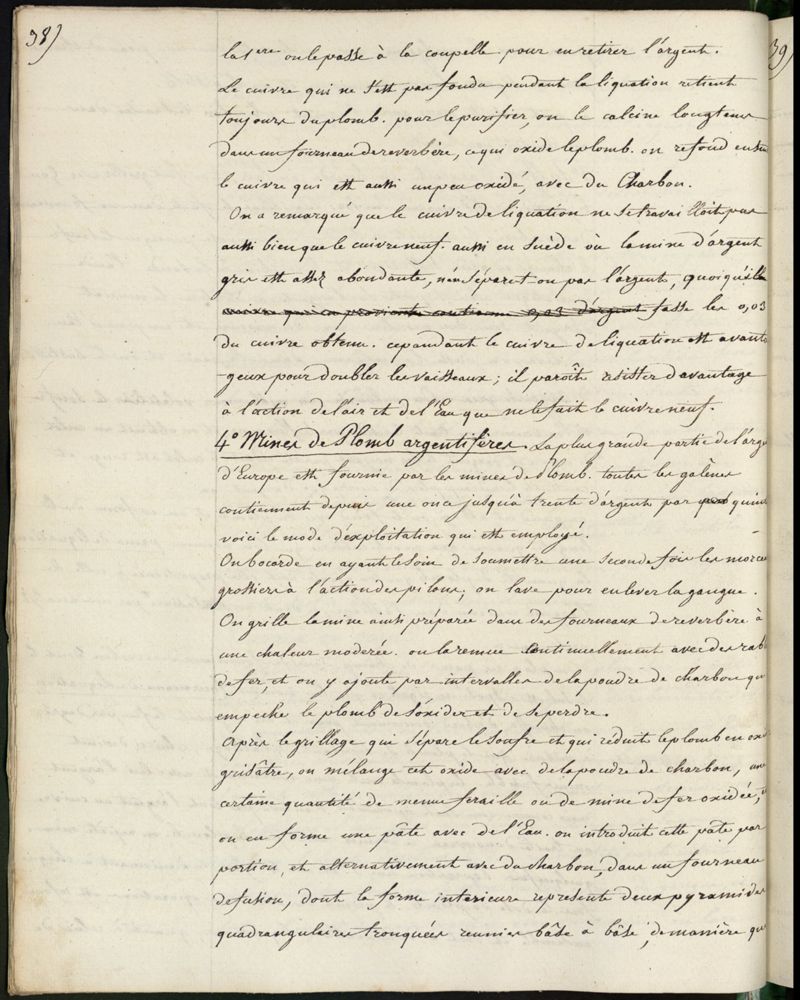 38)
39)
la 1ere on le passe à la coupelle pour en retirer l'argent.
Le cuivre qui ne s'est pas fondu pendant la liquation retient
toujours du plomb. pour le purifier, on le calcine longtems
dans un fourneau de reverbère, ce qui oxide le plomb. on refond ensu
le cuivre qui est aussi un peu oxidé, avec du Charbon.
On a remarqué que le cuivre de liquation ne se travailloit pas
aussi bien que le cuivre neuf. aussi en Suède où la mine d'argent
gris est assez abondante, n'en séparet on pas l'argent, quoiqu'il
cuivre qui en provient contienne 0,03 d'argent fasse les 0,03
du cuivre obtenu. cependant le cuivre de liquation est avanta
-geux pour doubler les vaisseaux; il paroît résister davantage
à l'action de l'air et de l'Eau que ne le fait le cuivre neuf.
4° Mines de Plomb argentifères. La plus grande partie de l'arge
d'Europe est fournie par les mines de Plomb. toutes les galènes
contiennent depuis une once jusqu'à trente d'argent par quint
voici le mode d'exploitation qui est employé.
On bocarde en ayant le soin de soumettre une seconde fois les morce
grossiers à l'action des pilons; on lave pour enlever la gangue.
On grille la mine ainsi préparée dans des fourneaux de reverbère à
une chaleur moderée. on la remue continuellement avec des rab
de fer, et on y ajoute par intervalles de la poudre de charbon qu
empeche le plomb de s'oxider et de se perdre.
après le grillage qui sépare le soufre et qui réduit le plomb en oxi
grisâtre, on mélange cet oxide avec de la poudre de charbon, une
certaine quantité de menue feraille ou de mine de fer oxidée,
on en forme une pâte avec de l'Eau. on introduit cette pate par
portion, et alternativement avec du charbon, dans un fourneau
de fusion, dont la forme interieure represente deux pyramides
quadrangulaires tronquées reunies bâse à bâse, de manière que